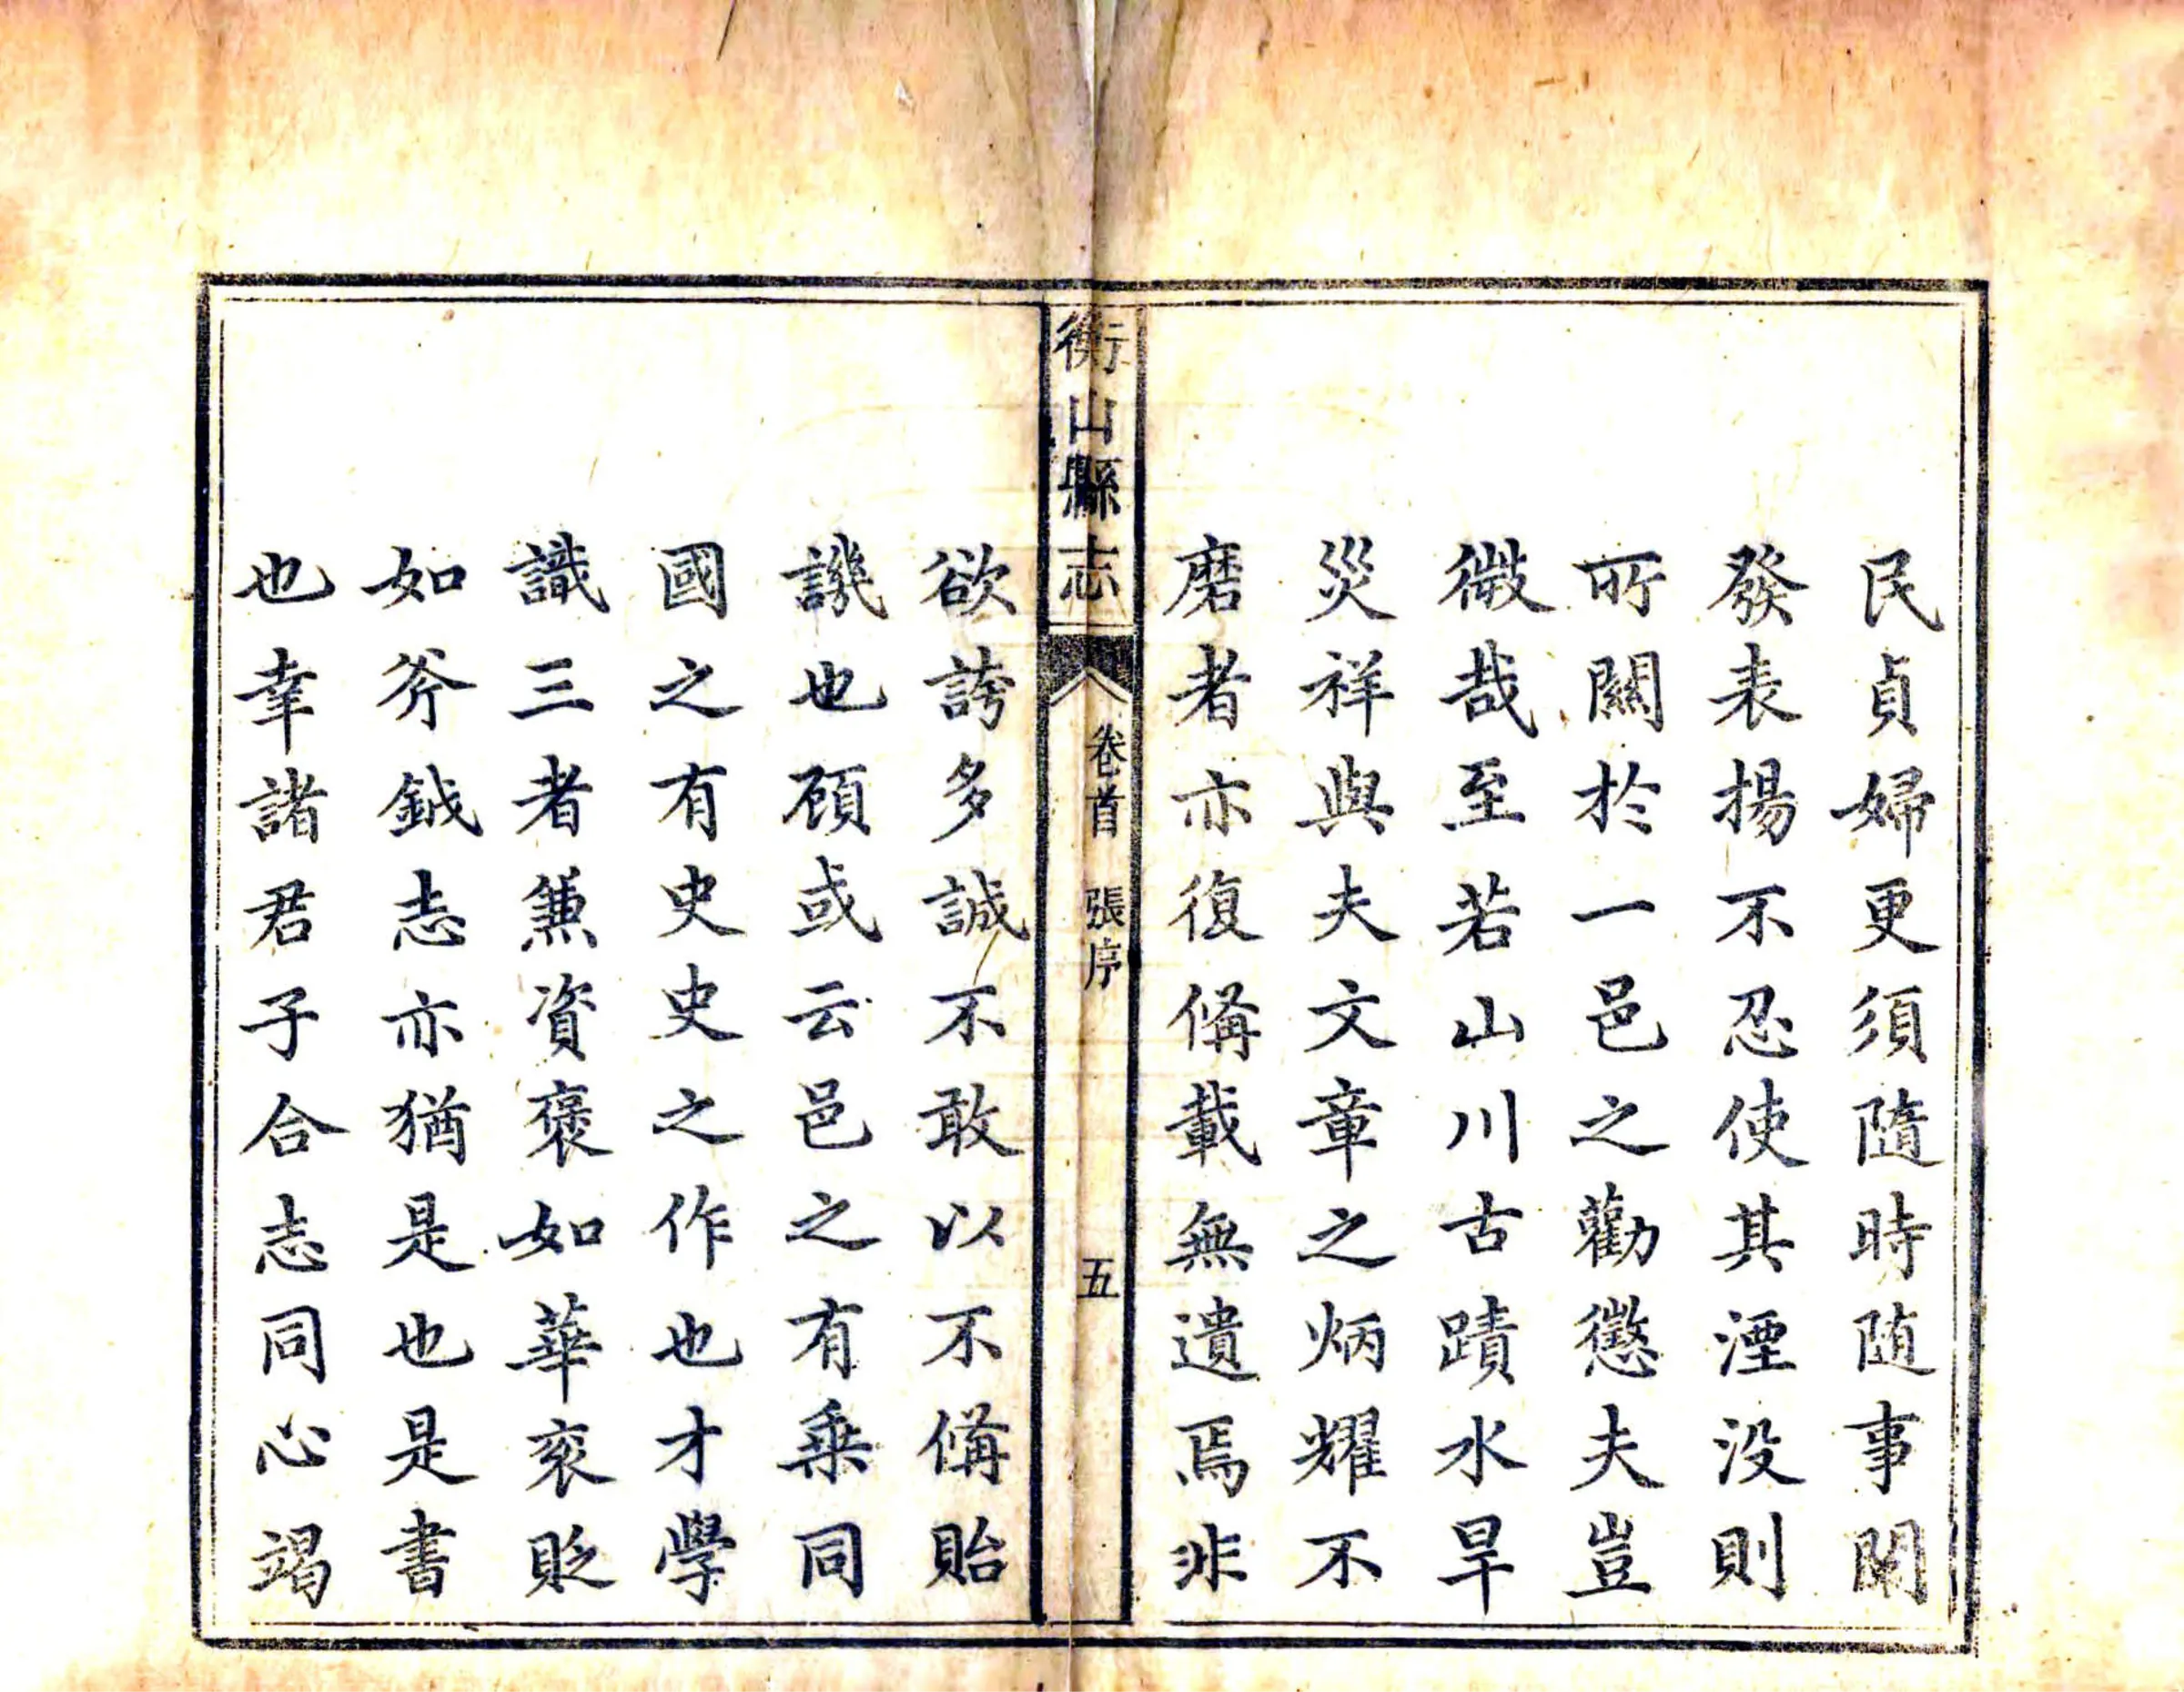 民貞婦更須隨時随事闡
發表揚不忍使其湮没則
所關於一邑之勸懲夫豈
微哉至若山川古蹟水旱
災祥與夫文章之炳耀不
磨者亦復偹載無遺焉非
衡山縣志
卷首 張序
五
欲誇多誠不敢以不偹貽
譏也顧或云邑之有乘同
國之有史史之作也才學
識三者兼資褒如華衮貶
如斧鉞志亦猶是也是書
也幸諸君子合志同心竭